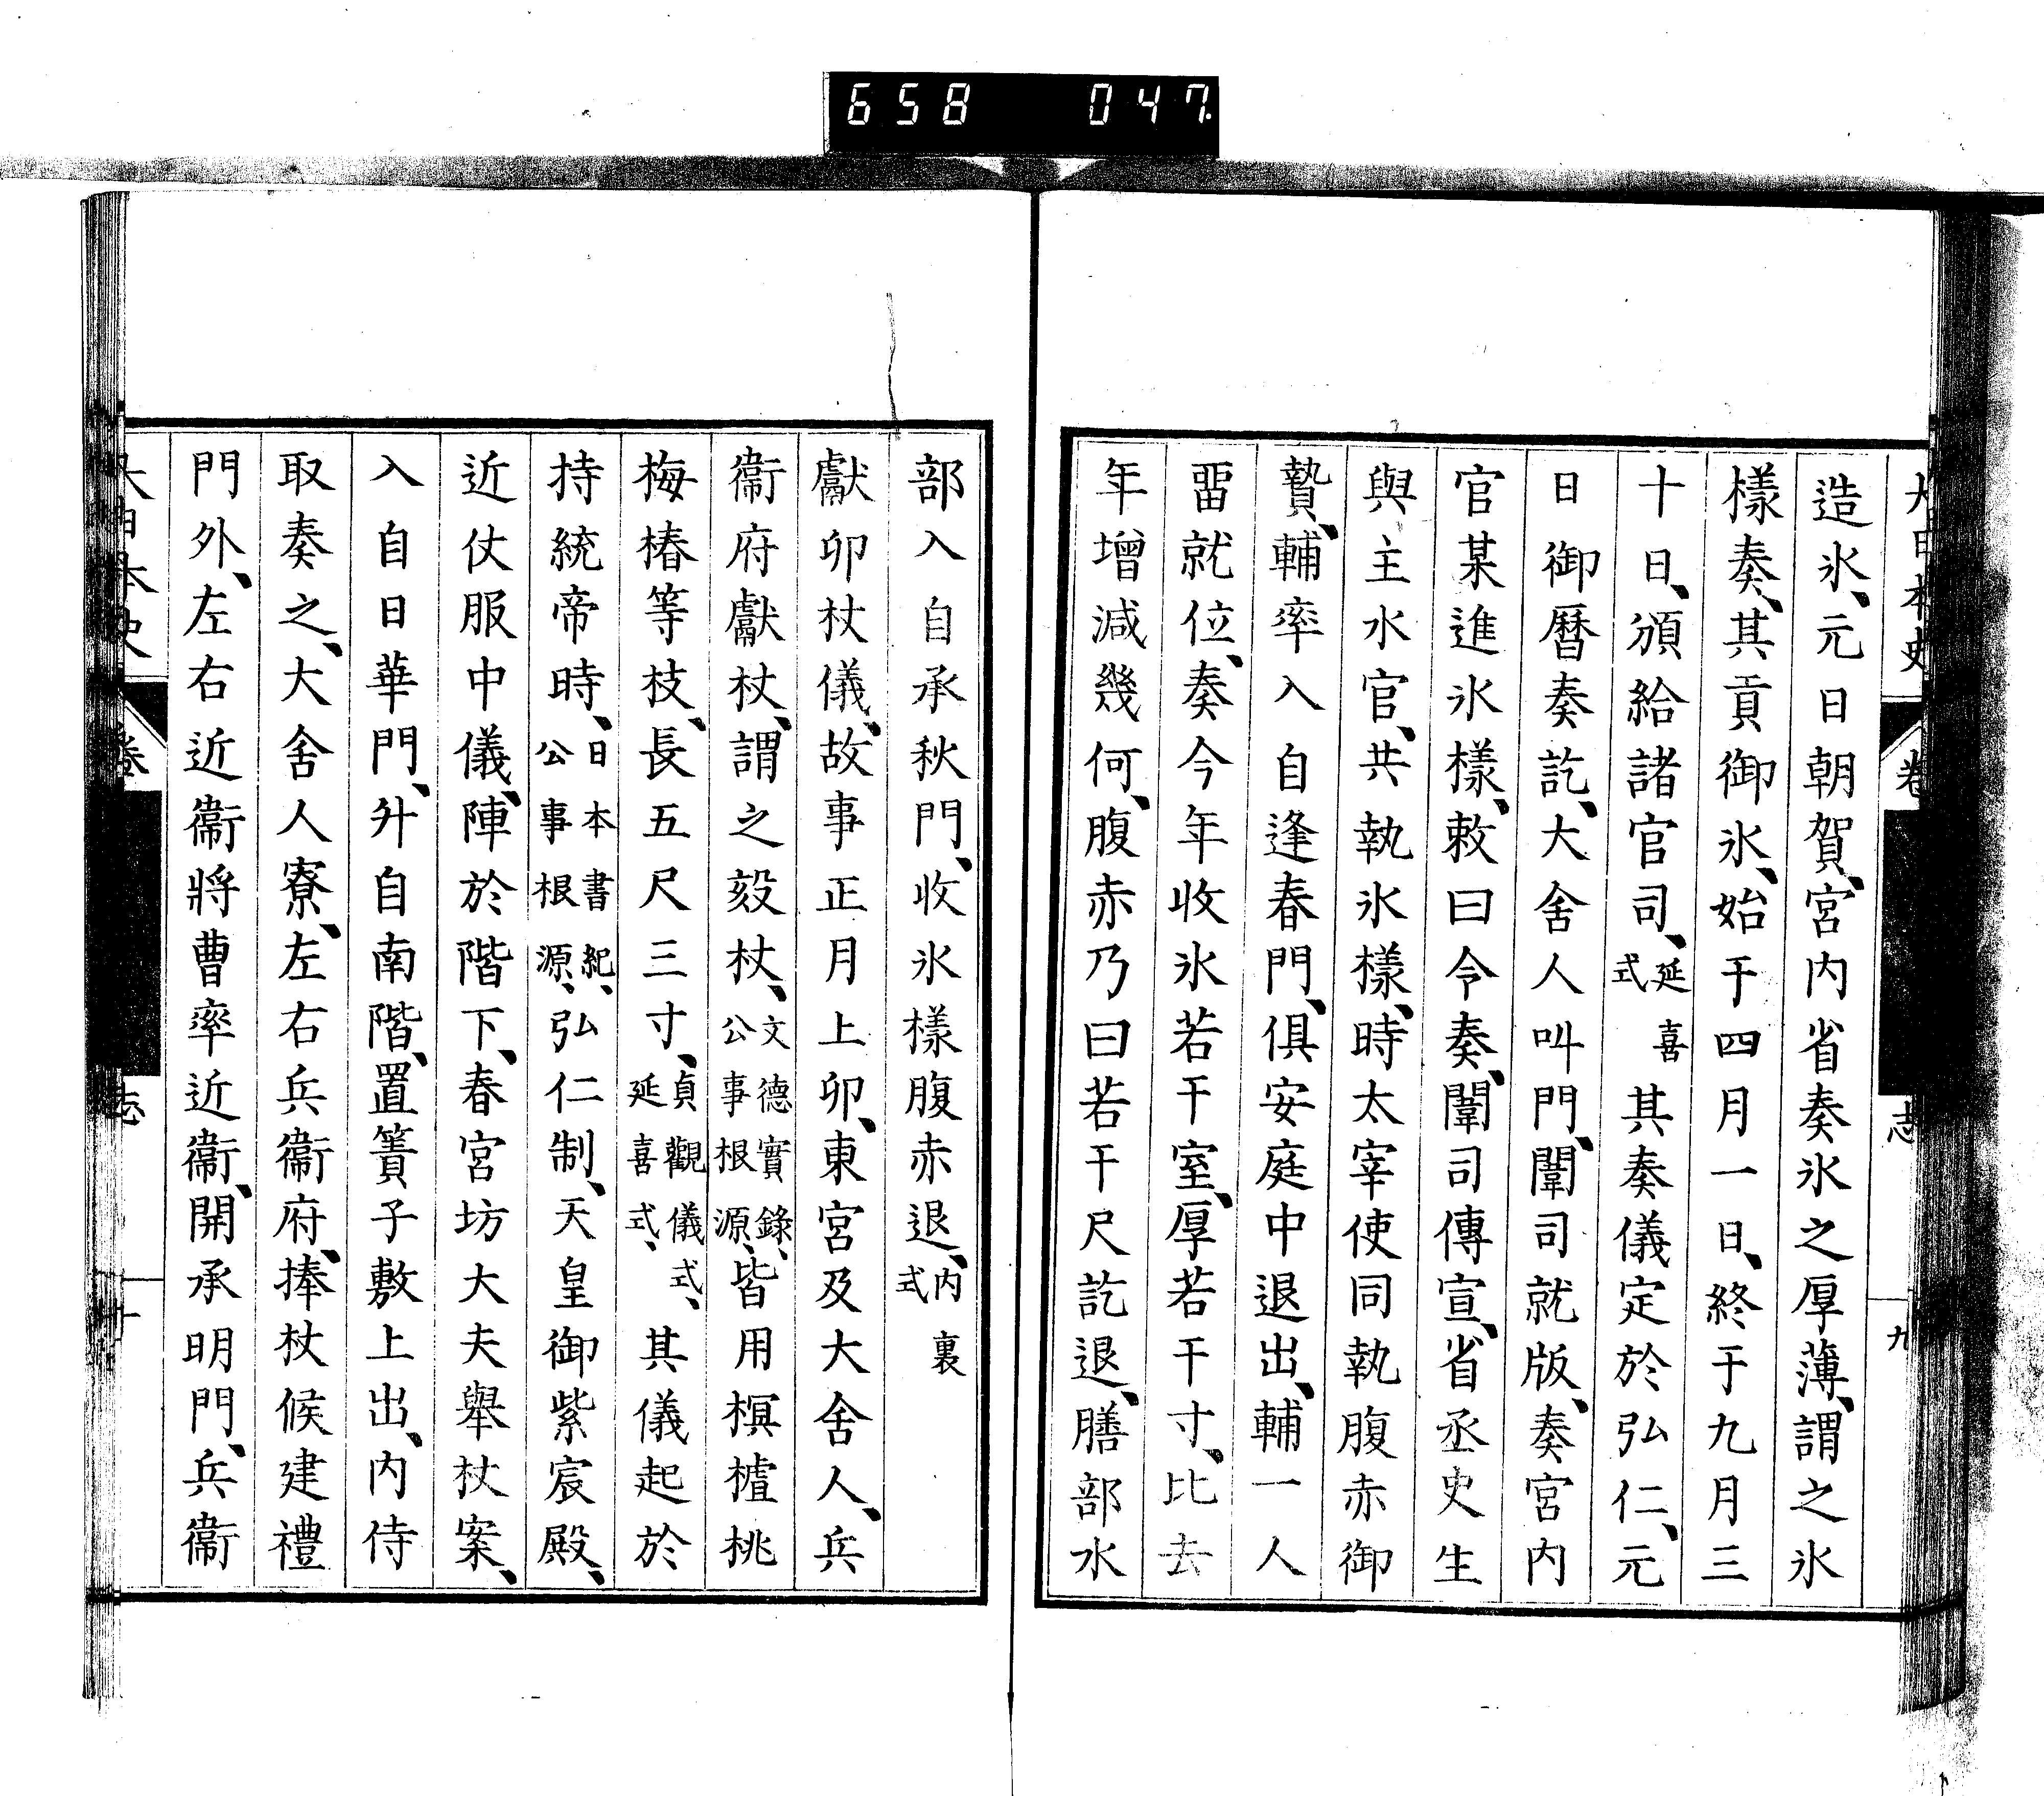 658 047
大日本史 卷 志 九
造氷、元日朝賀、宮内省奏氷之厚薄、謂之氷
樣奏、其貢御氷、始于四月一日、終于九月三
十日、頒給諸官司、延喜式其奏儀定於弘仁、元
日御曆奏訖、大舍人叫門、闈司就版、奏宮内
官某進氷樣、敕曰令奏、闈司傳宣、省丞史生
與主水官、共執氷樣、時太宰使同執腹赤御
贄、輔率入自逢春門、俱安庭中退出、輔一人
畱就位、奏今年收氷若干室、厚若干寸、比去
年增減幾何、腹赤乃曰若干尺訖退、膳部水
部入自承秋門、收氷樣腹赤退、内裏式
獻卯杖儀、故事正月上卯、東宮及大舍人、兵
衞府獻杖、謂之㱾杖、文德實錄、公事根源、皆用榠樝桃
梅椿等枝、長五尺三寸、貞觀儀式、延喜式、其儀起於
持統帝時、日本書紀、公事根源、弘仁制、天皇御紫宸殿、
近仗服中儀、陣於階下、春宮坊大夫舉杖案、
入自日華門、升自南階、置簀子敷上出、内侍
取奏之、大舍人寮、左右兵衞府、捧杖候建禮
門外、左右近衞將曹率近衞、開承明門、兵衞
大日本史 卷 志 十